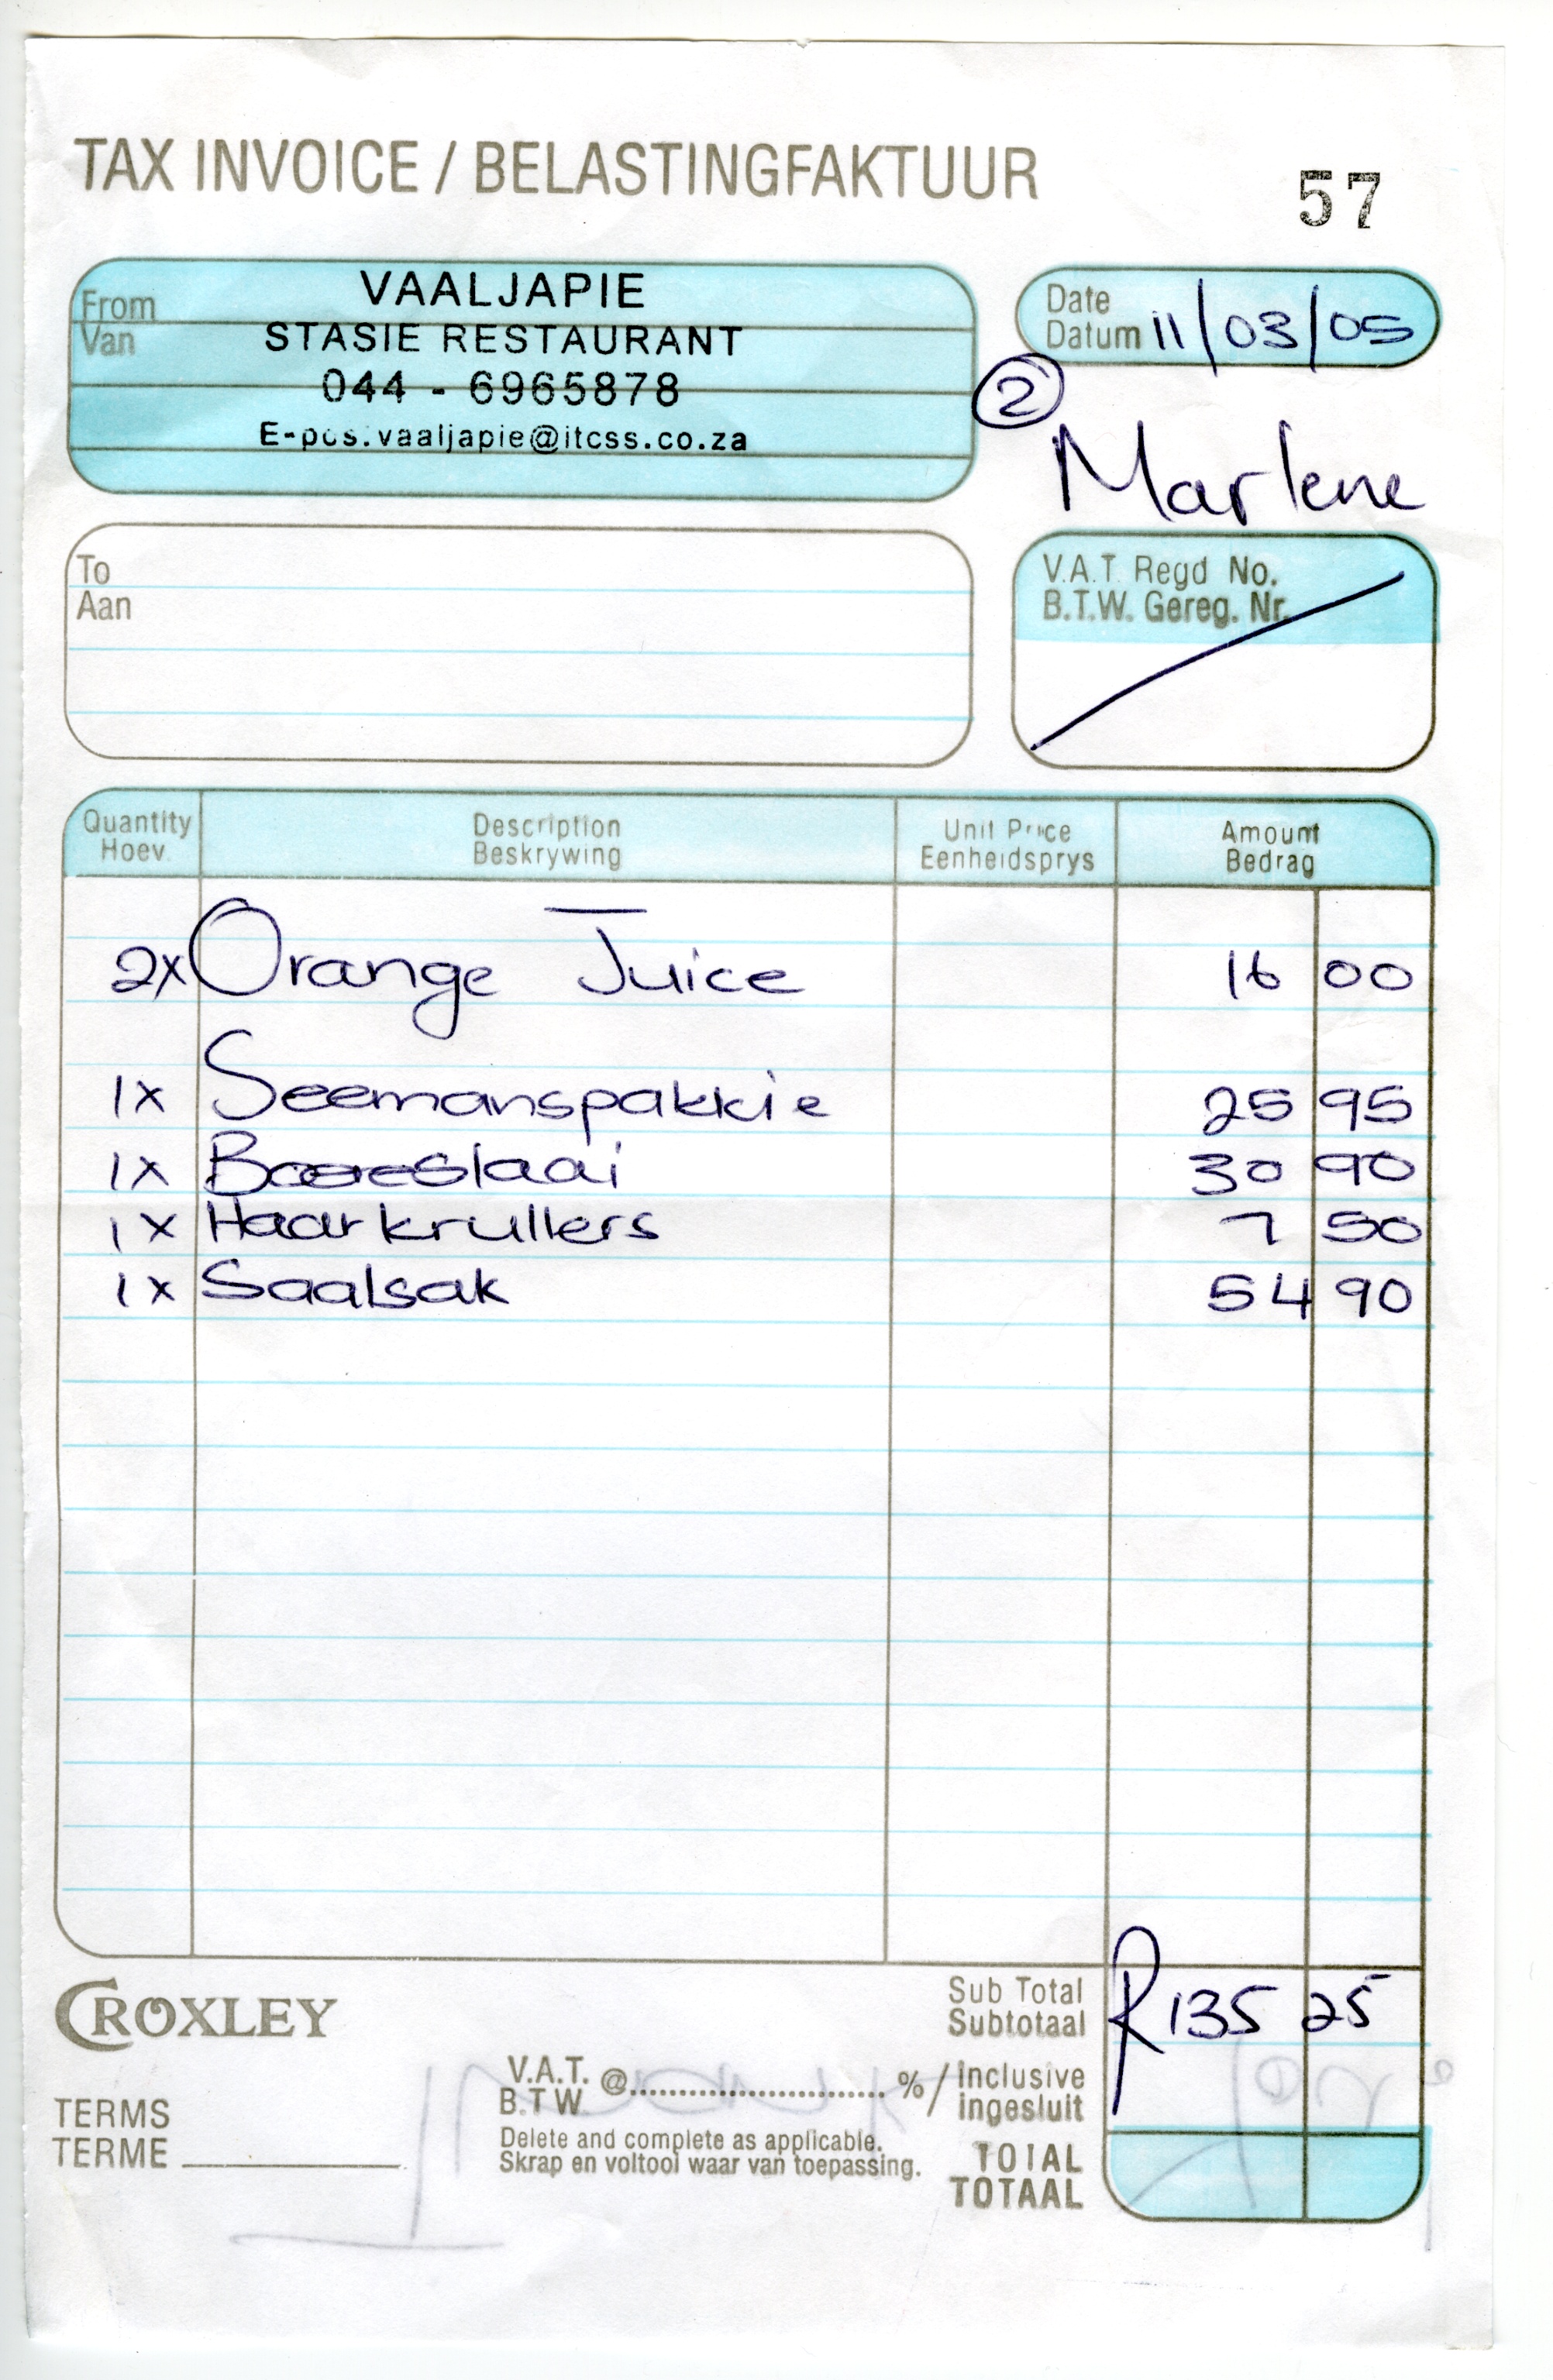 TAX INVOICE / BELASTINGFAKTUUR
57
From
Van
VAALJAPIE
STASIE RESTAURANT
044 - 6965878
E-pos.vaaljapie@itcss.co.za
Date
Datum 11/03/05
2
Marlene
To
Aan
V.A.T. Regd No.
B.T.W. Gereg. Nr.
Quantity Description Unit Price Amount
Hoev. Beskrywing Eenheidsprys Bedrag
2x Orange Juice 16 00
1x Seemanspakkie 25 95
1x Boereslaai 30 90
1x Haarkrullers 7 50
1x Saalsak 54 90
CROXLEY
Sub Total
Subtotaal
R135 25
V.A.T. @ % / Inclusive
B.T.W ingesluit
Delete and complete as applicable.
Skrap en voltooi waar van toepassing.
TERMS
TERME
TOTAL
TOTAAL